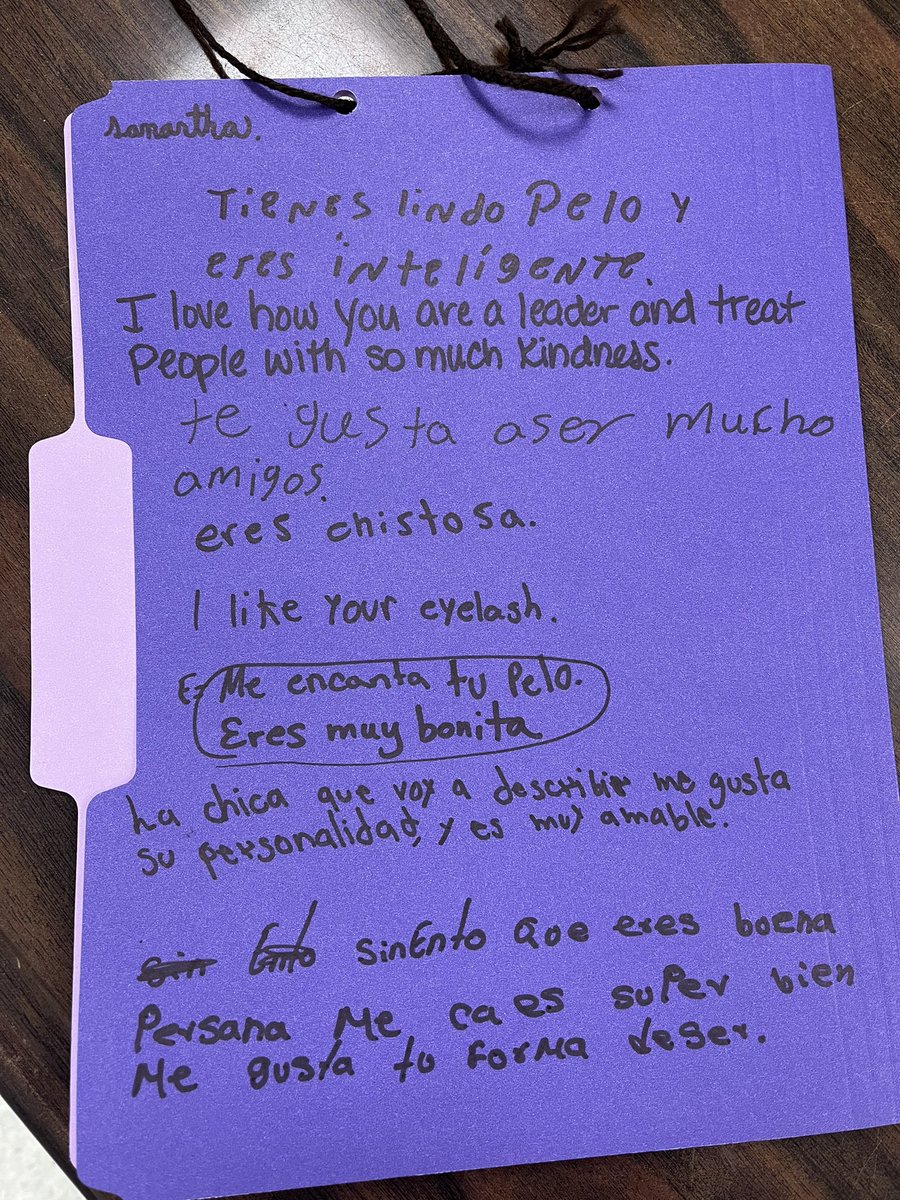 samantha.
Tienes lindo Pelo y
eres inteligente.
I love how you are a leader and treat
People with so much kindness.
te gusta aser mucho
amigos.
eres chistosa.
I like your eyelash.
E- Me encanta tu Pelo.
Eres muy bonita
La chica que voy a describir me gusta
su personalidad, y es muy amable.
sin Ento sinEnto Qoe eres boena
Persana Me caes super bien
Me gusta to forma deser.